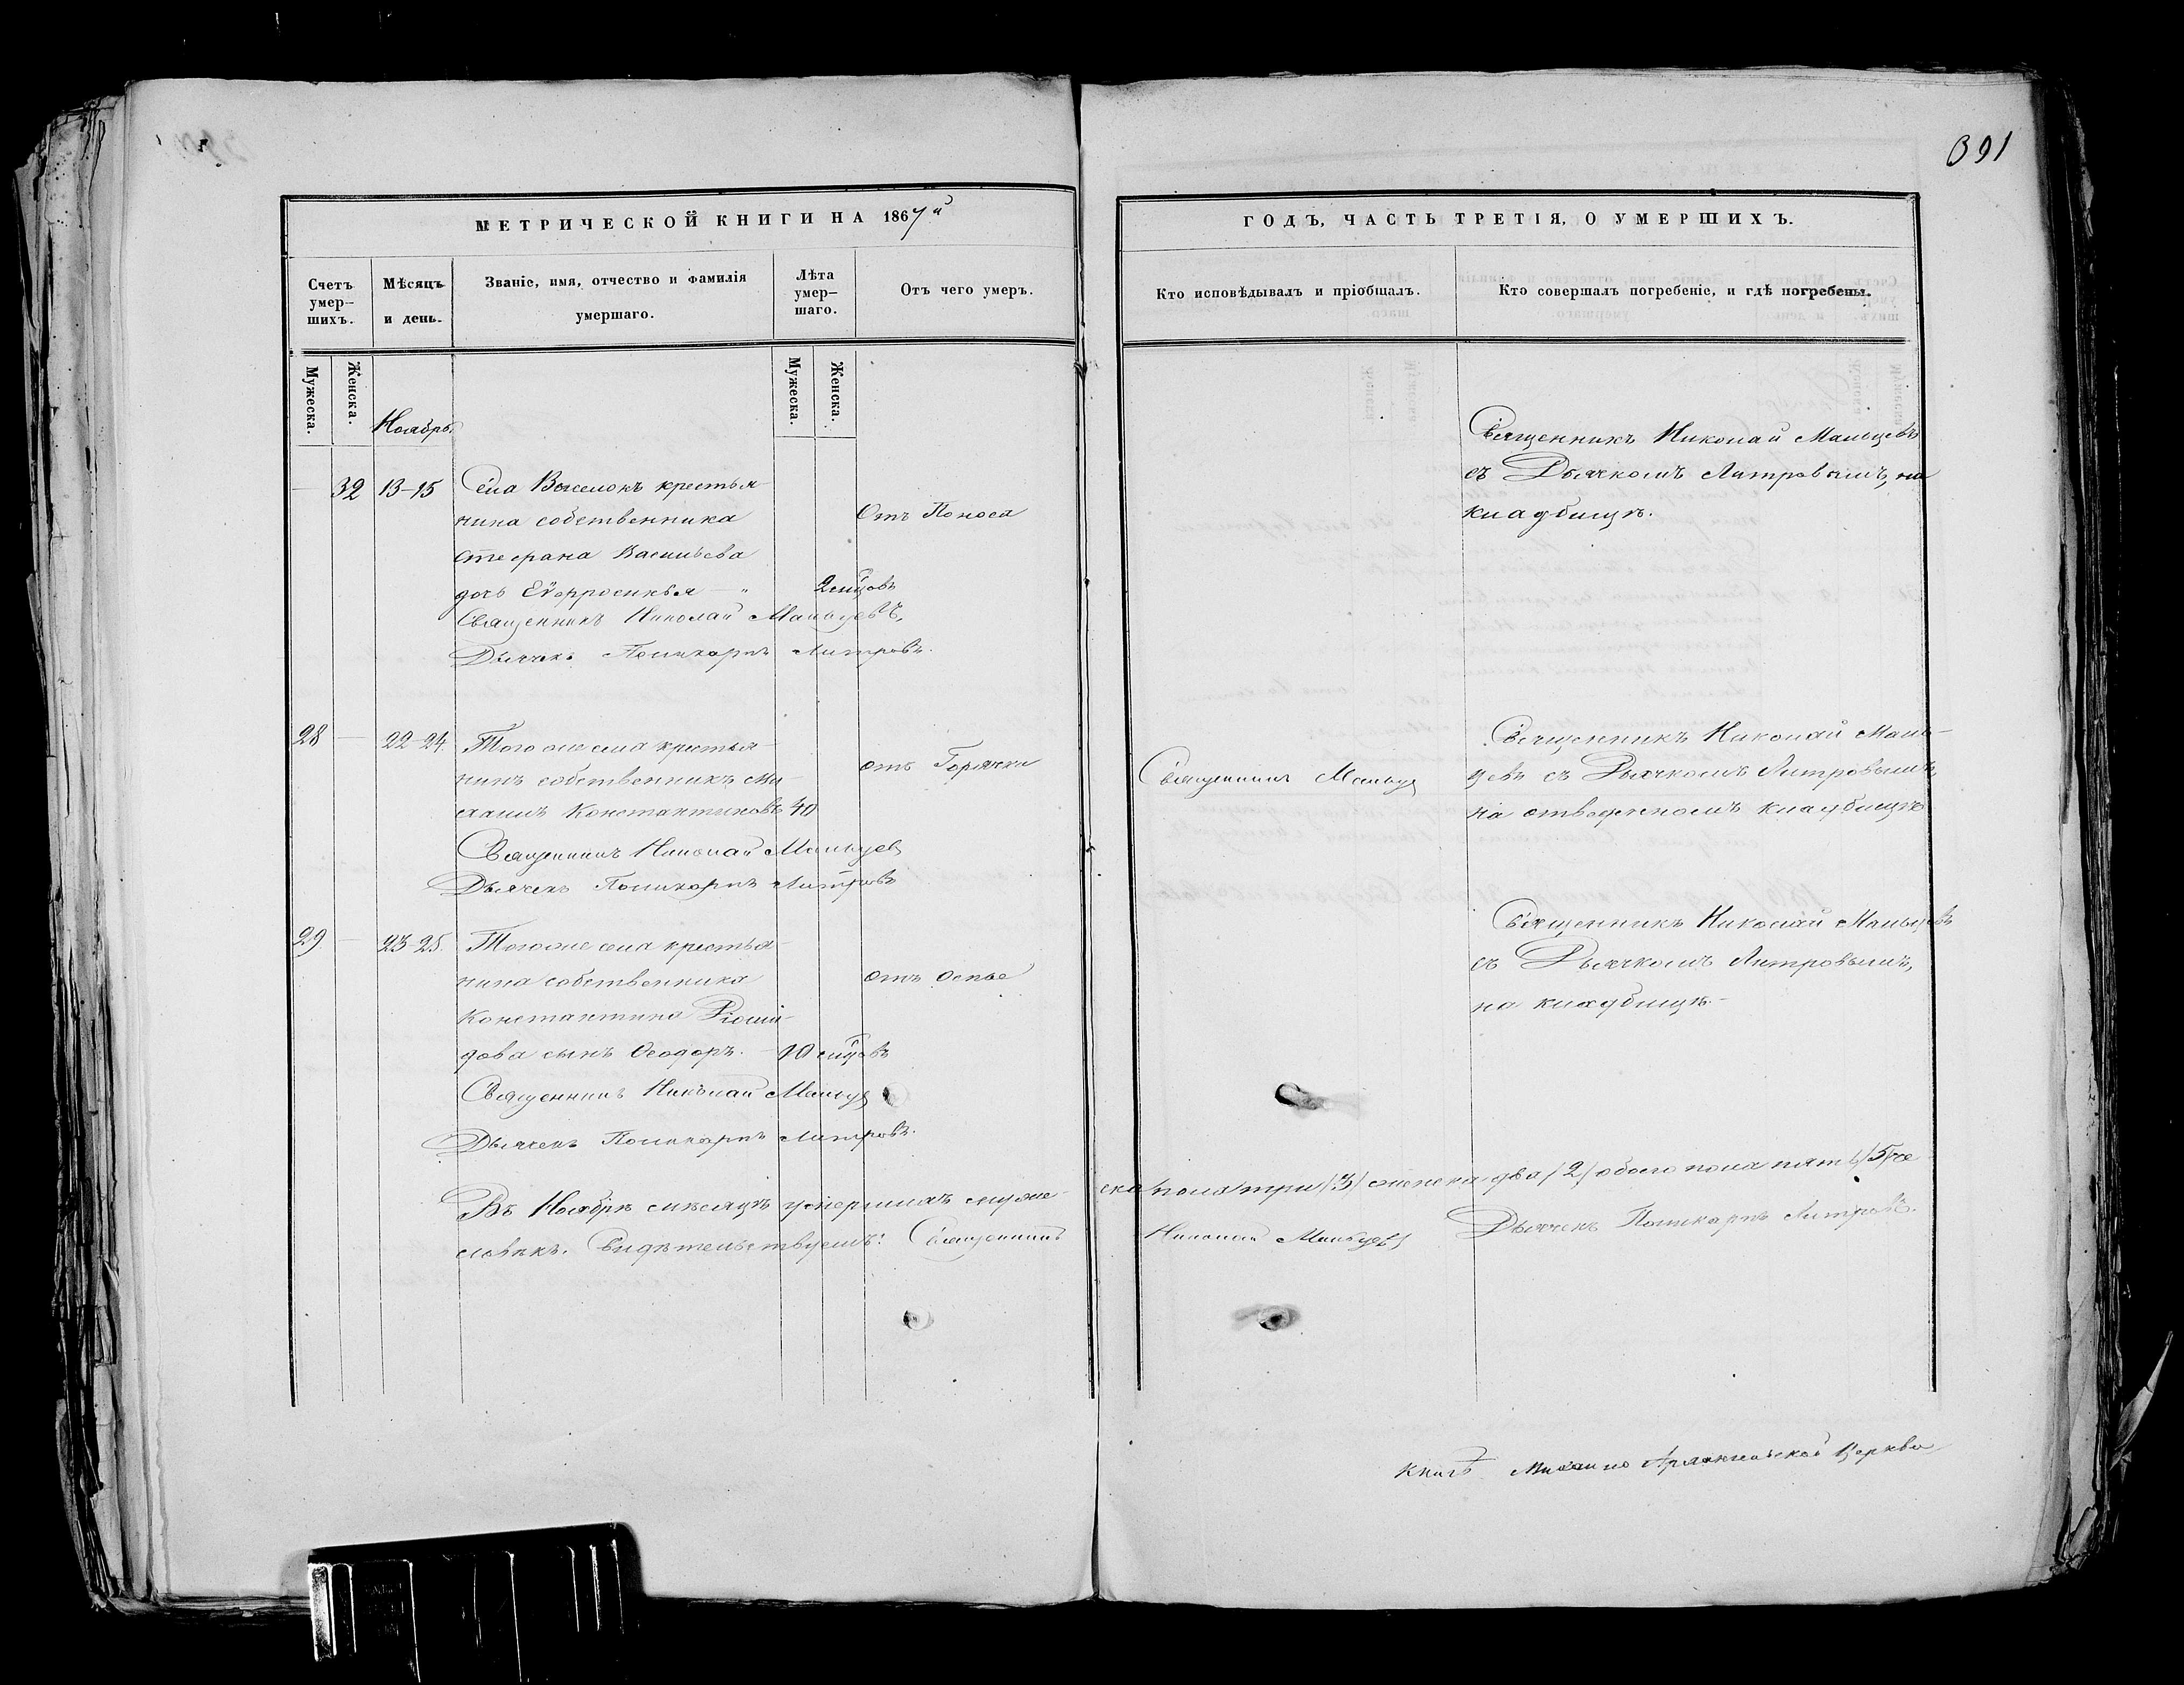 391
МЕТРИЧЕСКОЙ КНИГИ НА 1867й
Счетъ умер-шихъ.
Мѣсяцъ и день.
Званіе, имя, отчество и фамилія умершаго.
Лѣта умер-шаго.
Отъ чего умеръ.
Мужеска.
Женска.
Мужеска.
Женска.
Ноябрь
32 13-15 Села Выселокъ крестья-
нина собственника Отъ Поноса
Стефана Васильева
дочь Евфросинья - " 2 мцовъ
Священникъ Николай Мальцевъ,
Дьячекъ Поликарпъ Литровъ.
28 — 22-24 Того же села крестья-
нинъ собственникъ Ми- отъ Горячки
хаилъ Константиновъ 40
Священникъ Николай Мальцев
Дьячекъ Поликарпъ Литровъ
29 — 23-25. Того же села крестья-
нина собственника отъ оспы
Константина
дова сынъ Ѳеодоръ. - 10 мцовъ
Священникъ Николай Мальц
Дьячекъ Поликарпъ Литровъ.
Въ Ноябрѣ мѣсяцѣ умершихъ муже-
ловѣкъ. Свидѣтельствуемъ: Священникъ
ГОДЪ, ЧАСТЬ ТРЕТІЯ, О УМЕРШИХЪ.
Кто исповѣдывалъ и пріобщалъ.
Кто совершалъ погребеніе, и гдѣ погребены.
Священникъ Николай Мальцевъ
съ Дьячкомъ Литровымъ, на
кладбищѣ.
Священникъ Николай Маль-
Священникъ Мальц
цевъ съ Дьячкомъ Литровымъ,
на отведенномъ кладбищѣ
Священникъ Николай Мальцевъ
съ Дьячкомъ Литровымъ,
на кладбищѣ.-
ска пола три /3/ женска два /2/ обоего пола пять /5/ че
Николай Мальцевъ Дьячекъ Поликарпъ Литровъ.
Книгѣ Михаило Архангельской Церкви